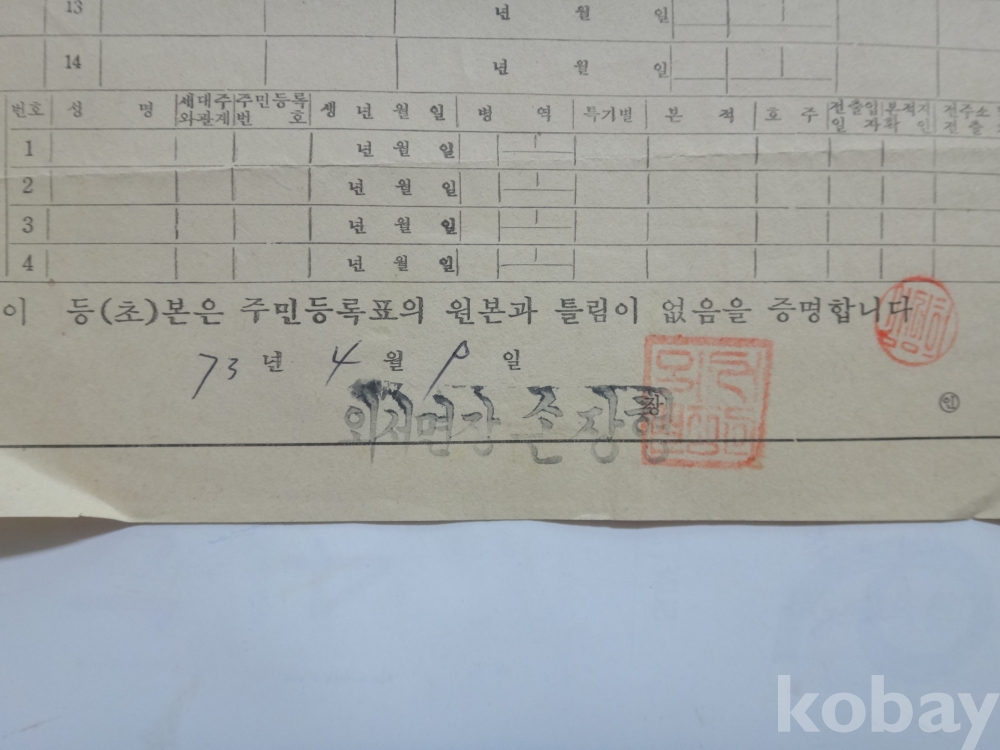 13 년 월 일
14 년 월 일
번호 성 명 세대주와관계 주민등록번 호 생 년 월 일 병 역 특기별 본 적 호 주 전출입일 자 본적지확 인 전주소 전출
1 년 월 일
2 년 월 일
3 년 월 일
4 년 월 일
이 등(초)본은 주민등록표의 원본과 틀림이 없음을 증명합니다
73 년 4 월 9 일
외서면장 장
인
kobay